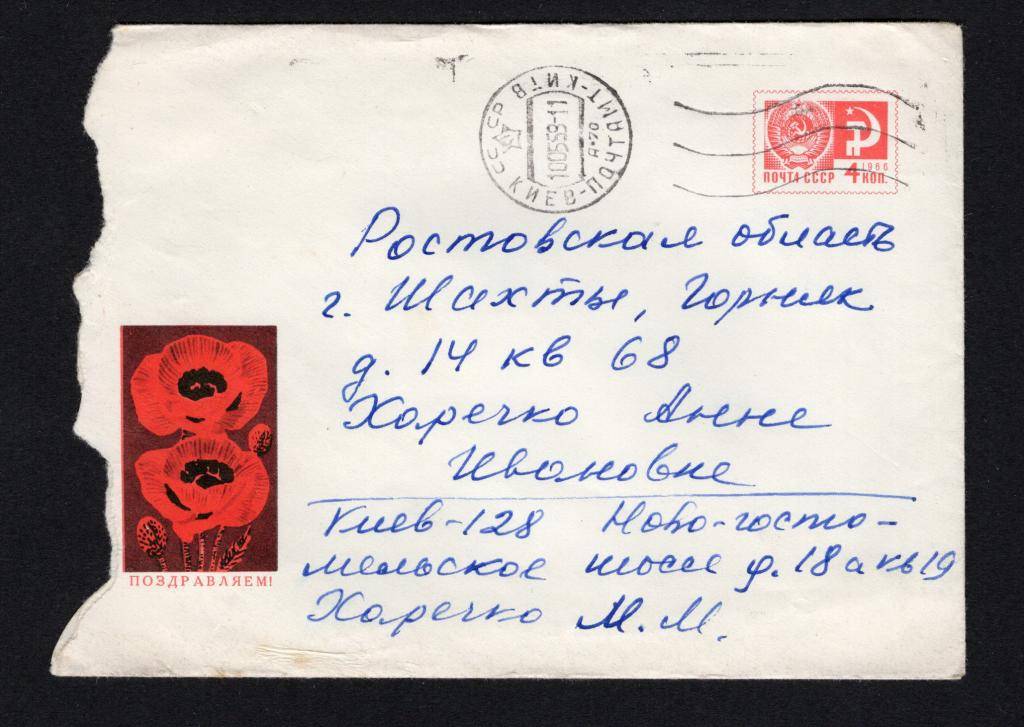 СССР КИЕВ-ПОЧТАМТ-КИЇВ
100559-11
ПОЧТА СССР
1966
4 КОП.
Ростовская область
г. Шахты, Горняк
д. 14 кв 68
Харечко Анне
Ивановне
Киев-128 Ново-госто-
мельское шоссе д. 18а кв 19
Харечко М. М.
ПОЗДРАВЛЯЕМ!